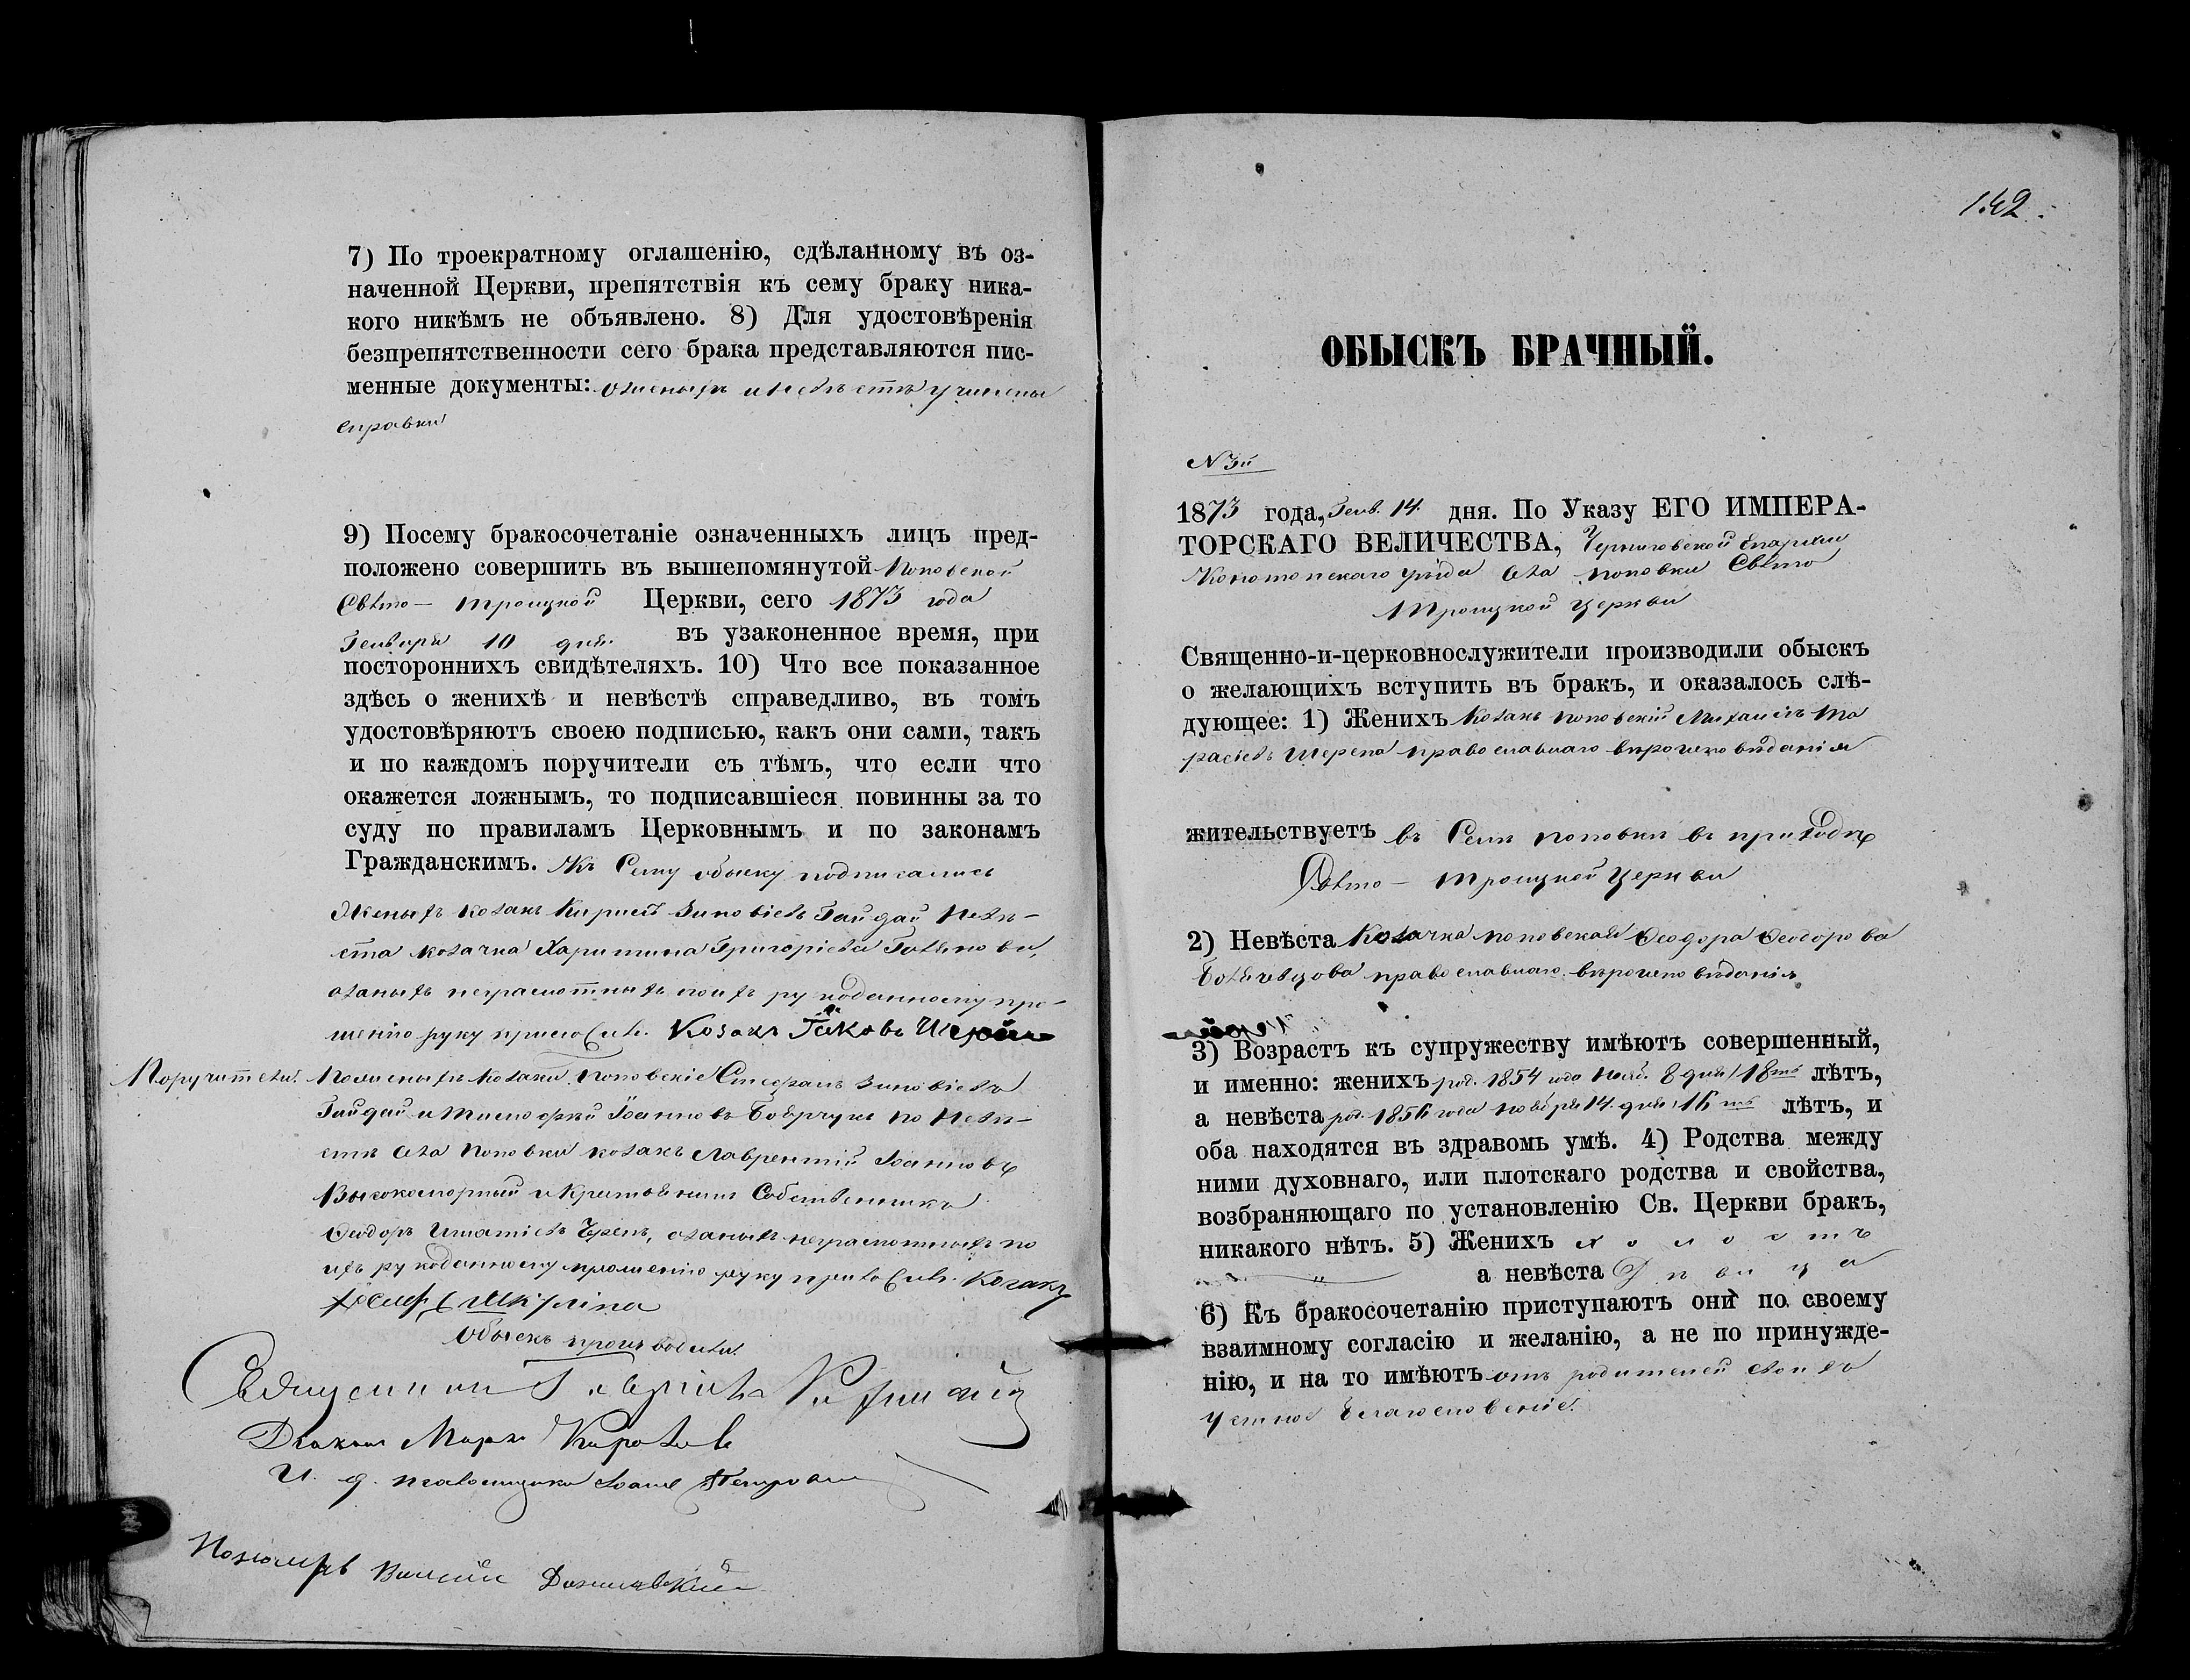 7) По троекратному оглашенію, сдѣланному въ оз-
наченной Церкви, препятствія къ сему браку ника-
кого никѣмъ не объявлено. 8) Для удостовѣренія
безпрепятственности сего брака представляются пис-
менные документы: о женихѣ и невѣстѣ учинены
справки
9) Посему бракосочетаніе означенныхъ лицъ пред-
положено совершить въ вышепомянутой Поповской
Свято-Троицкой Церкви, сего 1873 года
Генваря 10 дня. въ узаконенное время, при
постороннихъ свидѣтеляхъ. 10) Что все показанное
здѣсь о женихѣ и невѣстѣ справедливо, въ томъ
удостовѣряютъ своею подписью, какъ они сами, такъ
и по каждомъ поручители съ тѣмъ, что если что
окажется ложнымъ, то подписавшіеся повинны за то
суду по правиламъ Церковнымъ и по законамъ
Гражданскимъ. Къ сему обыску подписались
Женихъ козакъ Зиновіевъ Гайдай Невѣ-
ста козачка Харитина Григоріева
а за нихъ неграмотныхъ по ихъ рукоданному про-
шенію руку приложилъ. Козакъ Іаковъ
Поручители: По женихѣ козаки Поповскіе Стефанъ Зиновіевъ
Гайдай и Тимофей Іоанновъ по Невѣ-
стѣ села Поповки козакъ Лаврентій Іоанновъ
Высокоморный и Крестьянинъ Собственникъ
Феодоръ Игнатіевъ а за нихъ неграмотныхъ по
ихъ рукоданному прошенію руку приложилъ. Козакъ
Обыскъ производили:
Священникъ
Діаконъ Маркъ
И. д. псаломщика
Пономарь
142
ОБЫСКЪ БРАЧНЫЙ.
N 3й
1873 года, Генв. 14. дня. По Указу ЕГО ИМПЕРА-
ТОРСКАГО ВЕЛИЧЕСТВА, Черниговской Епархіи
Конотопскаго уѣзда села Поповки Свято
Троицкой Церкви
Священно-и-церковнослужители производили обыскъ
о желающихъ вступить въ бракъ, и оказалось слѣ-
дующее: 1) Женихъ Козакъ Поповскій Михаилъ Та
расіевъ Шерепа православнаго вѣроисповѣданія
жительствуетъ въ Селѣ Поповки въ приходѣ
Свято-Троицкой Церкви
2) Невѣста Козачка Поповская Феодора Феодорова
православнаго вѣроисповѣданія
3) Возрастъ къ супружеству имѣютъ совершенный,
и именно: женихъ род. 1854 года Нояб. 8 дня, 18ть лѣтъ,
а невѣста род. 1856 года Ноября 14. дня, 16ть лѣтъ, и
оба находятся въ здравомъ умѣ. 4) Родства между
ними духовнаго, или плотскаго родства и свойства,
возбраняющаго по установленію Св. Церкви бракъ,
никакого нѣтъ. 5) Женихъ холостъ
а невѣста Дѣвица
6) Къ бракосочетанію приступаютъ они по своему
взаимному согласію и желанію, а не по принужде-
нію, и на то имѣютъ отъ родителей своихъ
устное благословеніе.